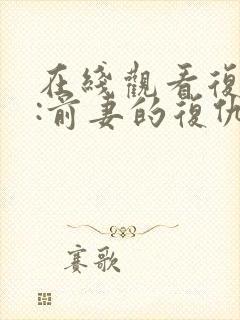 在綫觀看復
:前妻的復仇
賽歌